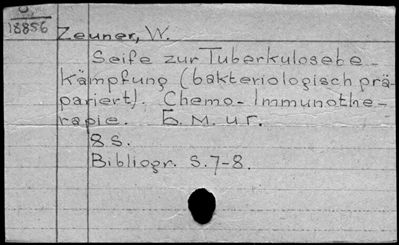 18856
Zeuner, W.
Seife zur Tuberkulosebe-
kämpfung (bakteriologisch prä-
pariert). Chemo-Immunothe-
rapie. Б.м. u г.
8 S.
Bibliogr. S. 7-8.